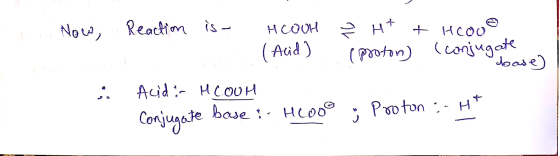 Now, Reaction is - HCOOH ⇌ H⁺ + HCOO⊖
(Acid) (proton) (conjugate base)
∴ Acid :- HCOOH
Conjugate base :- HCOO⊖ ; Proton :- H⁺